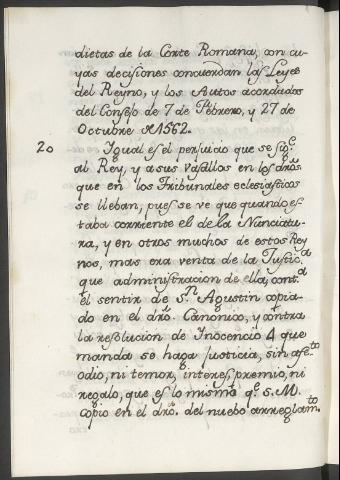 dietas de la Corte Romana, con cu-
yas decisiones concuerdan las Leyes
del Reyno, y los Autos acordados
del Consejo de 7 de Febrero, y 27 de
Octubre de 1562.
20 Igual es el perjuicio que se sigᵉ.
al Rey, y a sus Vasallos en los drõs.
que en los Tribunales eclesiasticos
se lleban, pues se ve que quando es-
taba corriente el de la Nunciatu-
ra, y en otros muchos de estos Rey
nos, mas era venta de la Justicᵃ
que administracion de ella, contᵃ
el sentir de Sⁿ Agustin copia-
do en el drõ. Canonico, y contra
la resolucion de Inocencio 4 que
manda se haga justicia, sin afeᵗᵒ
odio, ni temor, interes, premio, ni
regalo, que es lo mismo qᵉ. S. M.
copio en el drõ. del nuebo arreglamᵗᵒ.